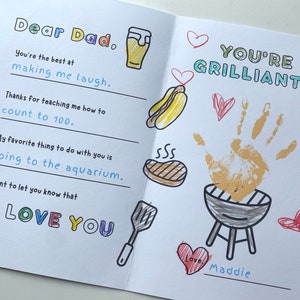 Dear Dad,
You're the best at
making me laugh.
Thanks for teaching me how to
count to 100.
My favorite thing to do with you is
going to the aquarium.
nt to let you know that
LOVE YOU
YOU'RE
GRILLIANT
Love,
Maddie